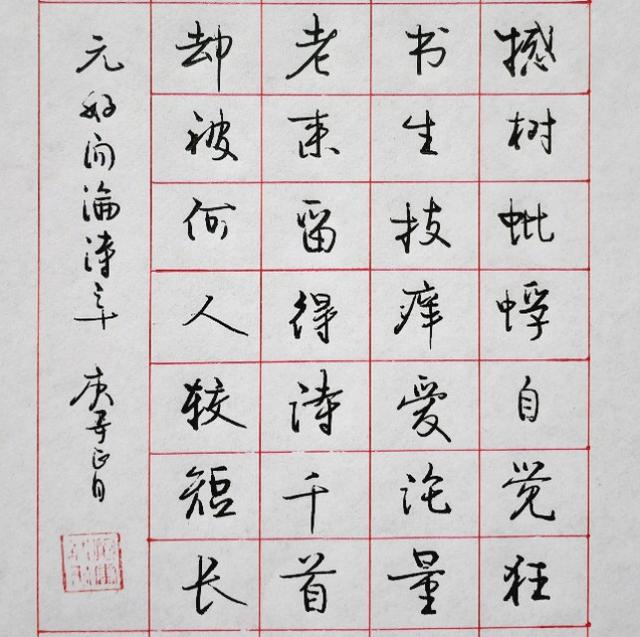 撼树蚍蜉自觉狂
书生技痒爱论量
老来留得诗千首
却被何人较短长
元好问论诗三十 庚子正月